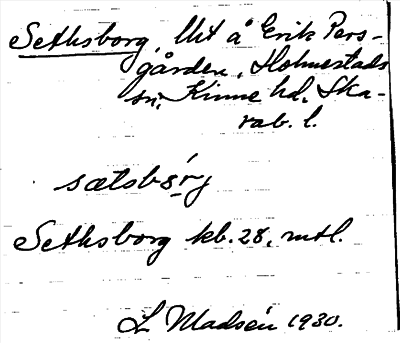 Sethsborg, Uit å Erik Pers-
gården, Holmestads
sn, Kinne hd, Ska-
rab. l.
sætsbǫrj
Sethsborg kb. 28, mtl.
L Madsén 1930.